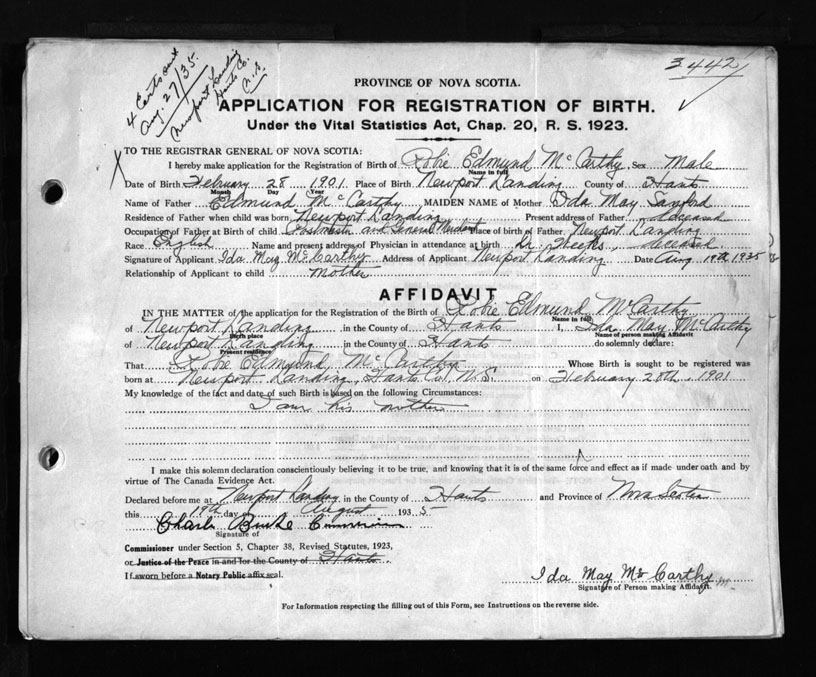 4 Certs sent
Aug. 27/35.
Newport Landing
Hants Co.
N.S.
3442
PROVINCE OF NOVA SCOTIA.
APPLICATION FOR REGISTRATION OF BIRTH.
Under the Vital Statistics Act, Chap. 20, R. S. 1923.
TO THE REGISTRAR GENERAL OF NOVA SCOTIA:
I hereby make application for the Registration of Birth of Robie Edmund McCarthy, Sex Male
Name in full
Date of Birth February 28 1901. Place of Birth Newport Landing County of Hants
Month Day Year
Name of Father Edmund McCarthy MAIDEN NAME of Mother Ida May Sanford
Residence of Father when child was born, Newport Landing Present address of Father deceased
Occupation of Father at Birth of child Postmaster and General Merchant Place of birth of Father, Newport Landing
Race English Name and present address of Physician in attendance at birth Dr. Weeks, deceased
Signature of Applicant Ida May McCarthy Address of Applicant Newport Landing Date Aug 19th 1935
Relationship of Applicant to child Mother
AFFIDAVIT
IN THE MATTER of the application for the Registration of the Birth of Robie Edmund McCarthy
Name in full
of Newport Landing in the County of Hants I, Ida May McCarthy
Birth place Name of person making Affidavit
of Newport Landing in the County of Hants do solemnly declare:
Present residence
That Robie Edmund McCarthy Whose Birth is sought to be registered was
born at Newport Landing, Hants Co. N.S. on February 28th, 1901
My knowledge of the fact and date of such Birth is based on the following Circumstances:
I am his mother
I make this solemn declaration conscientiously believing it to be true, and knowing that it is of the same force and effect as if made under oath and by
virtue of The Canada Evidence Act.
Declared before me at Newport Landing in the County of Hants and Province of Nova Scotia
this 19th day of August 1935
Charles Burke Commissioner
Signature of
Commissioner under Section 5, Chapter 38, Revised Statutes, 1923,
or Justice of the Peace in and for the County of Hants.
If sworn before a Notary Public affix seal.
Ida May McCarthy
Signature of Person making Affidavit.
For Information respecting the filling out of this Form, see Instructions on the reverse side.